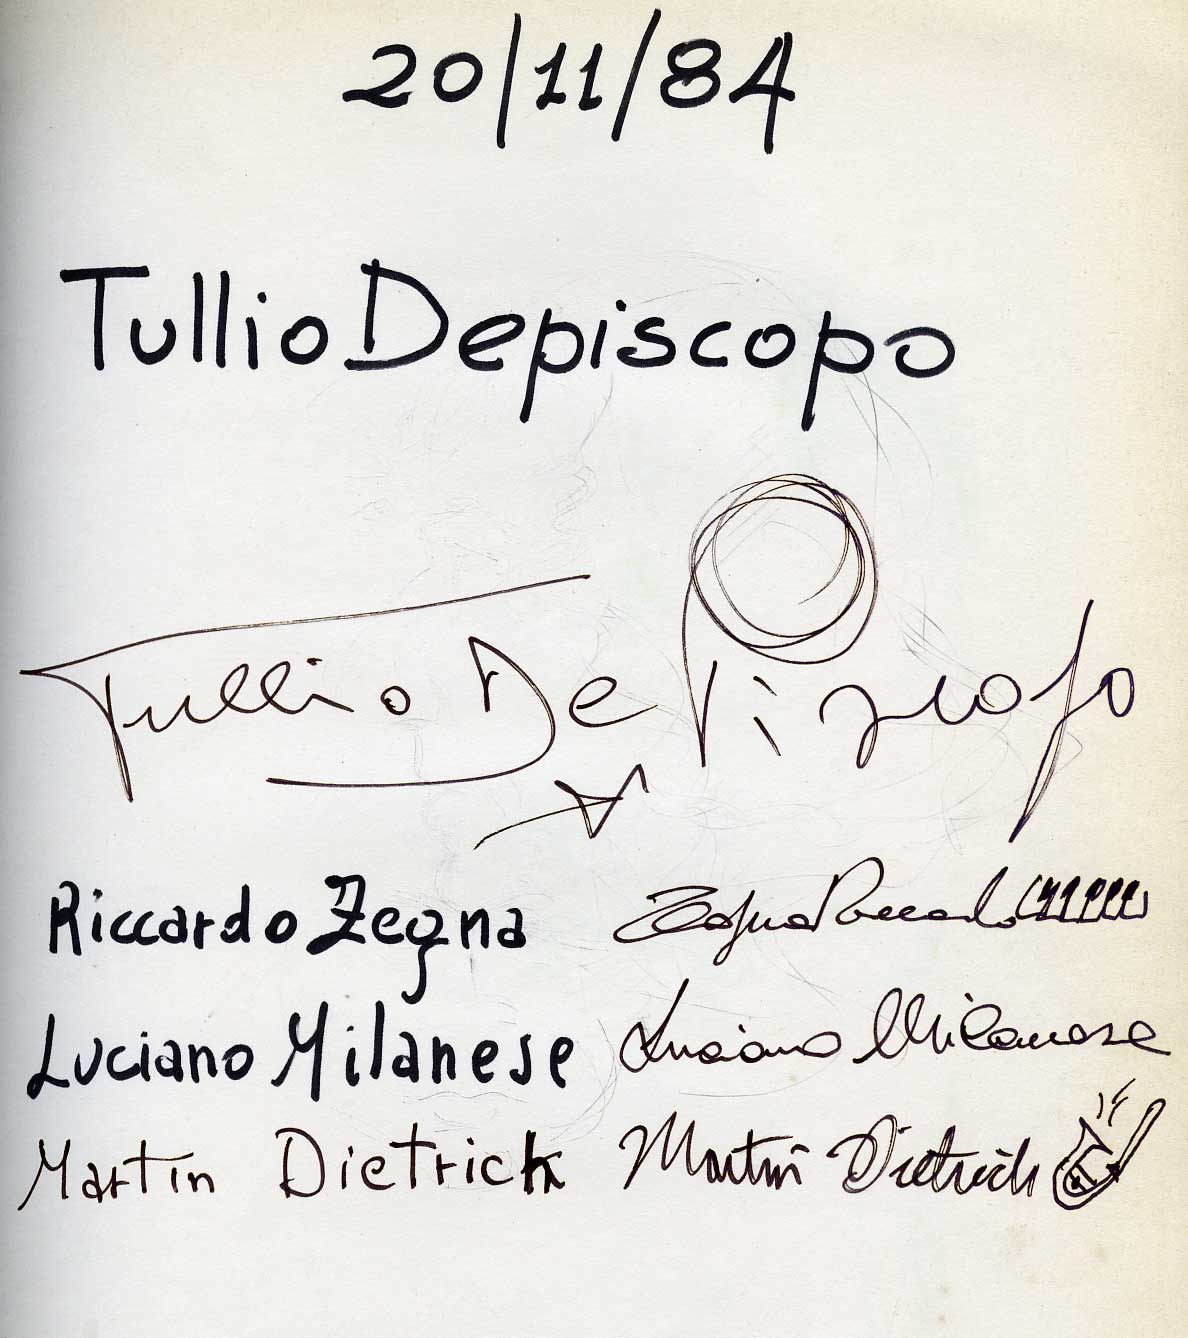 20/11/84
Tullio Depiscopo
Tullio De Piscopo
Riccardo Zegna Zegna Riccardo
Luciano Milanese Luciano Milanese
Martin Dietrich Martin Dietrich